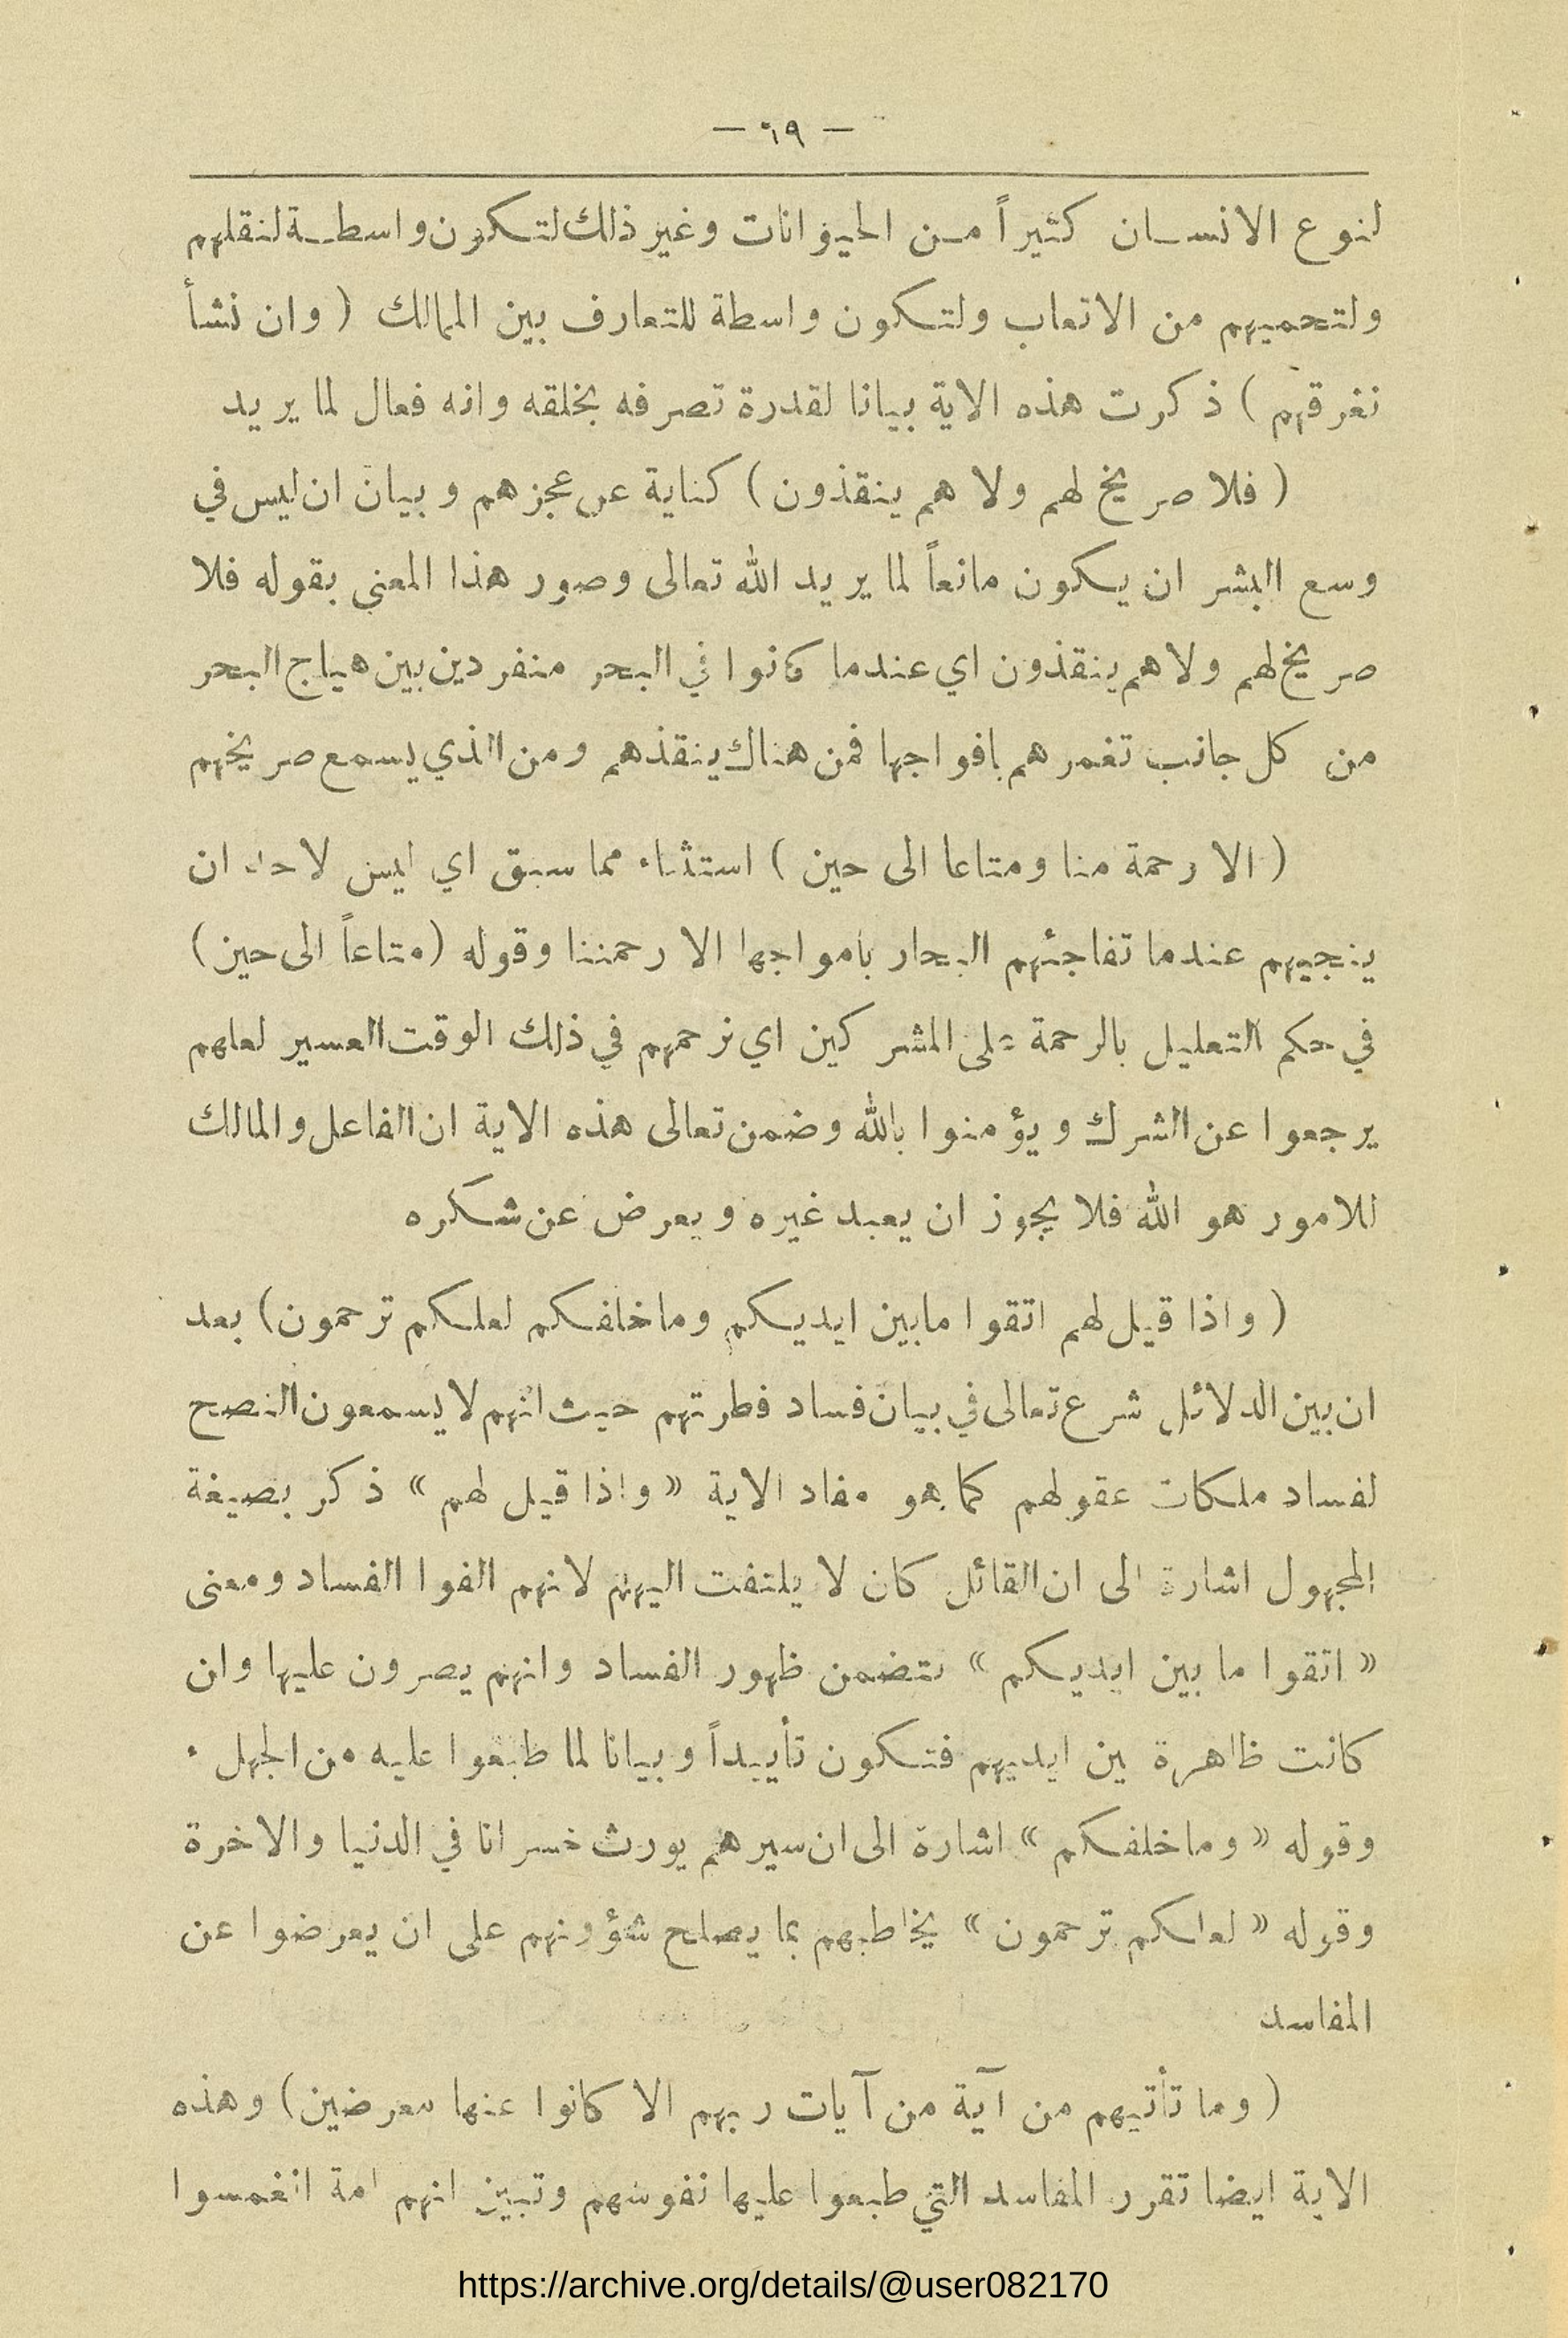 — ٦٩ —
لنوع الانسان كثيراً من الحيوانات وغير ذلك لتكون واسطة لنقلهم
ولتحميهم من الاتعاب ولتكون واسطة للتعارف بين الممالك ( وان نشأ
نغرقهم ) ذكرت هذه الاية بيانا لقدرة تصرفه بخلقه وانه فعال لما يريد
( فلا صريخ لهم ولا هم ينقذون ) كناية عن عجزهم وبيان ان ليس في
وسع البشر ان يكون مانعاً لما يريد الله تعالى وصور هذا المعنى بقوله فلا
صريخ لهم ولا هم ينقذون اي عندما كانوا في البحر منفردين بين هياج البحر
من كل جانب تغمرهم بافواجها فمن هناك ينقذهم ومن الذي يسمع صريخهم
( الا رحمة منا ومتاعا الى حين ) استثناء مما سبق اي ليس لاحد ان
ينجيهم عندما تفاجئهم البحار بامواجها الا رحمتنا وقوله ( متاعاً الى حين )
في حكم التعليل بالرحمة على المشركين اي نرحمهم في ذلك الوقت العسير لعلهم
يرجعوا عن الشرك ويؤمنوا بالله وضمن تعالى هذه الاية ان الفاعل والمالك
للامور هو الله فلا يجوز ان يعبد غيره ويعرض عن شكره
( واذا قيل لهم اتقوا مابين ايديكم وما خلفكم لعلكم ترحمون ) بعد
ان بين الدلائل شرع تعالى في بيان فساد فطرتهم حيث انهم لا يسمعون النصح
لفساد ملكات عقولهم كما هو مفاد الاية « واذا قيل لهم » ذكر بصيغة
المجهول اشارة الى ان القائل كان لا يلتفت اليهم لانهم الفوا الفساد ومعنى
« اتقوا ما بين ايديكم » تتضمن ظهور الفساد وانهم يصرون عليها وان
كانت ظاهرة بين ايديهم فتكون تأييداً وبيانا لما طبعوا عليه من الجهل .
وقوله « وما خلفكم » اشارة الى ان سيرهم يورث خسرانا في الدنيا والاخرة
وقوله « لعلكم ترحمون » يخاطبهم بما يصلح شؤونهم على ان يعرضوا عن
المفاسد
( وما تأتيهم من آية من آيات ربهم الا كانوا عنها معرضين ) وهذه
الاية ايضا تقرر المفاسد التي طبعوا عليها نفوسهم وتبين انهم امة انغمسوا
https://archive.org/details/@user082170